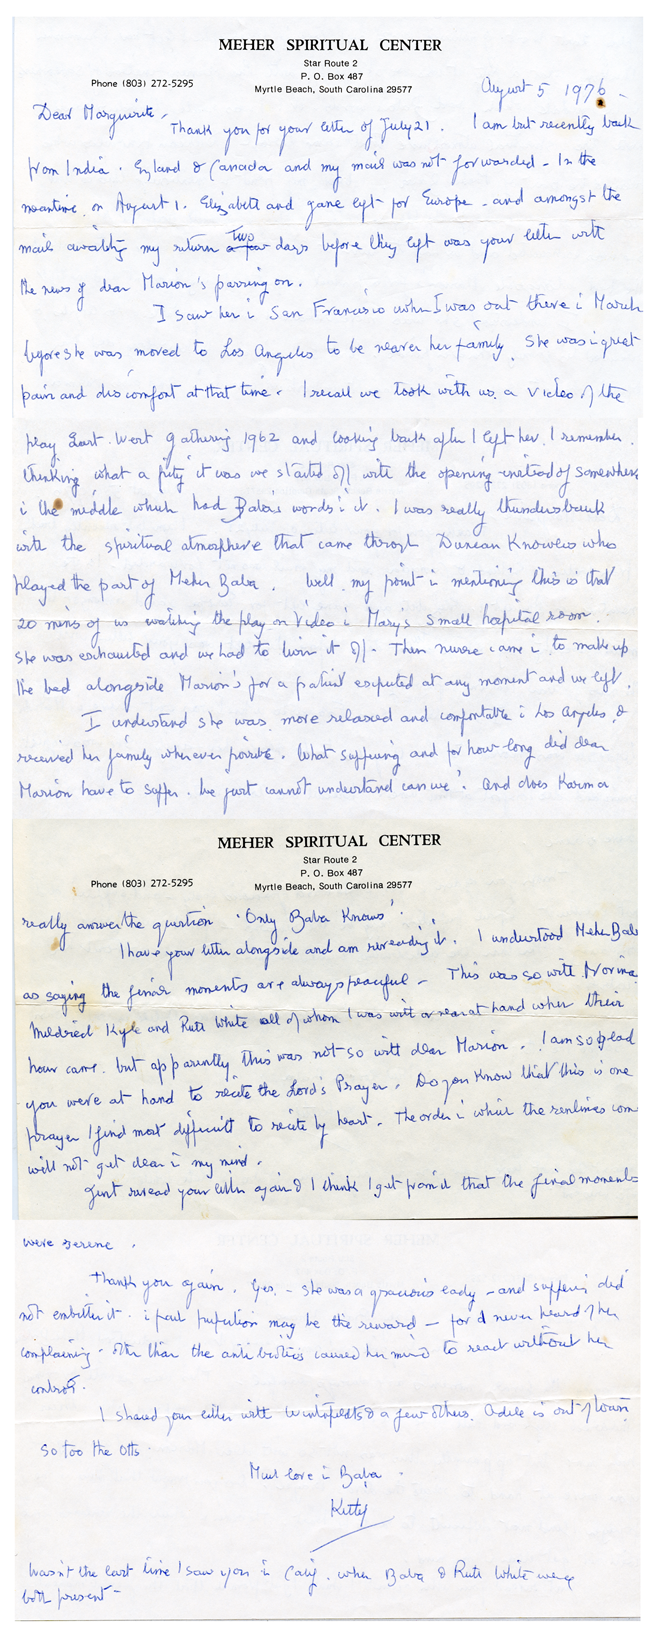 MEHER SPIRITUAL CENTER
Star Route 2
P. O. Box 487
Phone (803) 272-5295
Myrtle Beach, South Carolina 29577
August 5 1976 -
Dear Marguerite,
Thank you for your letter of July 21. I am but recently back
from India. England & Canada and my mail was not forwarded - In the
meantime, on August 1. Elizabeth and gane left for Europe - and amongst the
mail awaiting my return a few Two days before they left was your letter with
the news of dear Marion's passing on.
I saw her i San Francisco when I was out there i March
before she was moved to Los Angeles to be nearer her family. She was i great
pain and discomfort at that time. I recall we took with us a Video of the
play East-West gathering 1962 and looking back after I left her, I remember
thinking what a pity it was we started off with the opening instead of somewhere
i the middle which had Baba's words i it. I was really thunderstruck
with the spiritual atmosphere that came through Duncan Knowles who
played the part of Meher Baba. Well, my point i mentioning this is that
20 mins of us watching the play on Video i Mary's small hospital room.
She was exhausted and we had to turn it off. Then nurse came i to make up
the bed alongside Marion's for a patient expected at any moment and we left.
I understand she was more relaxed and comfortable i Los Angeles, &
received her family whenever possible. What suffering and for how long did dear
Marion have to suffer. We just cannot understand can we? And does Karma
MEHER SPIRITUAL CENTER
Star Route 2
P. O. Box 487
Phone (803) 272-5295
Myrtle Beach, South Carolina 29577
really answer the question 'Only Baba Knows'.
I have your letter alongside and am rereading it. I understood Meher Baba
as saying the final moments are always peaceful - This was so with Norina
Mildred Kyle and Ruth White all of whom I was with or near at hand when their
hour came. but apparently this was not so with dear Marion. I am so glad
you were at hand to recite the Lord's Prayer. Do you know that this is one
prayer I find most difficult to recite by heart. The order i which the come
will not get clear i my mind.
Just reread your letter again & I think I get from it that the final moments
were serene.
Thank you again. Yes, - she was a gracious lady - and suffering did
not embitter it. i feel perfection may be the reward - for I never heard of her
complaining - other than the antibiotics caused her mind to react without her
control.
I shared your letter with Winterfeldts & a few others. Adele is out of town,
so too the Otts
Much love i Baba.
Kitty
Wasn't the last time I saw you in Calif. when Baba & Ruth White were
both present -